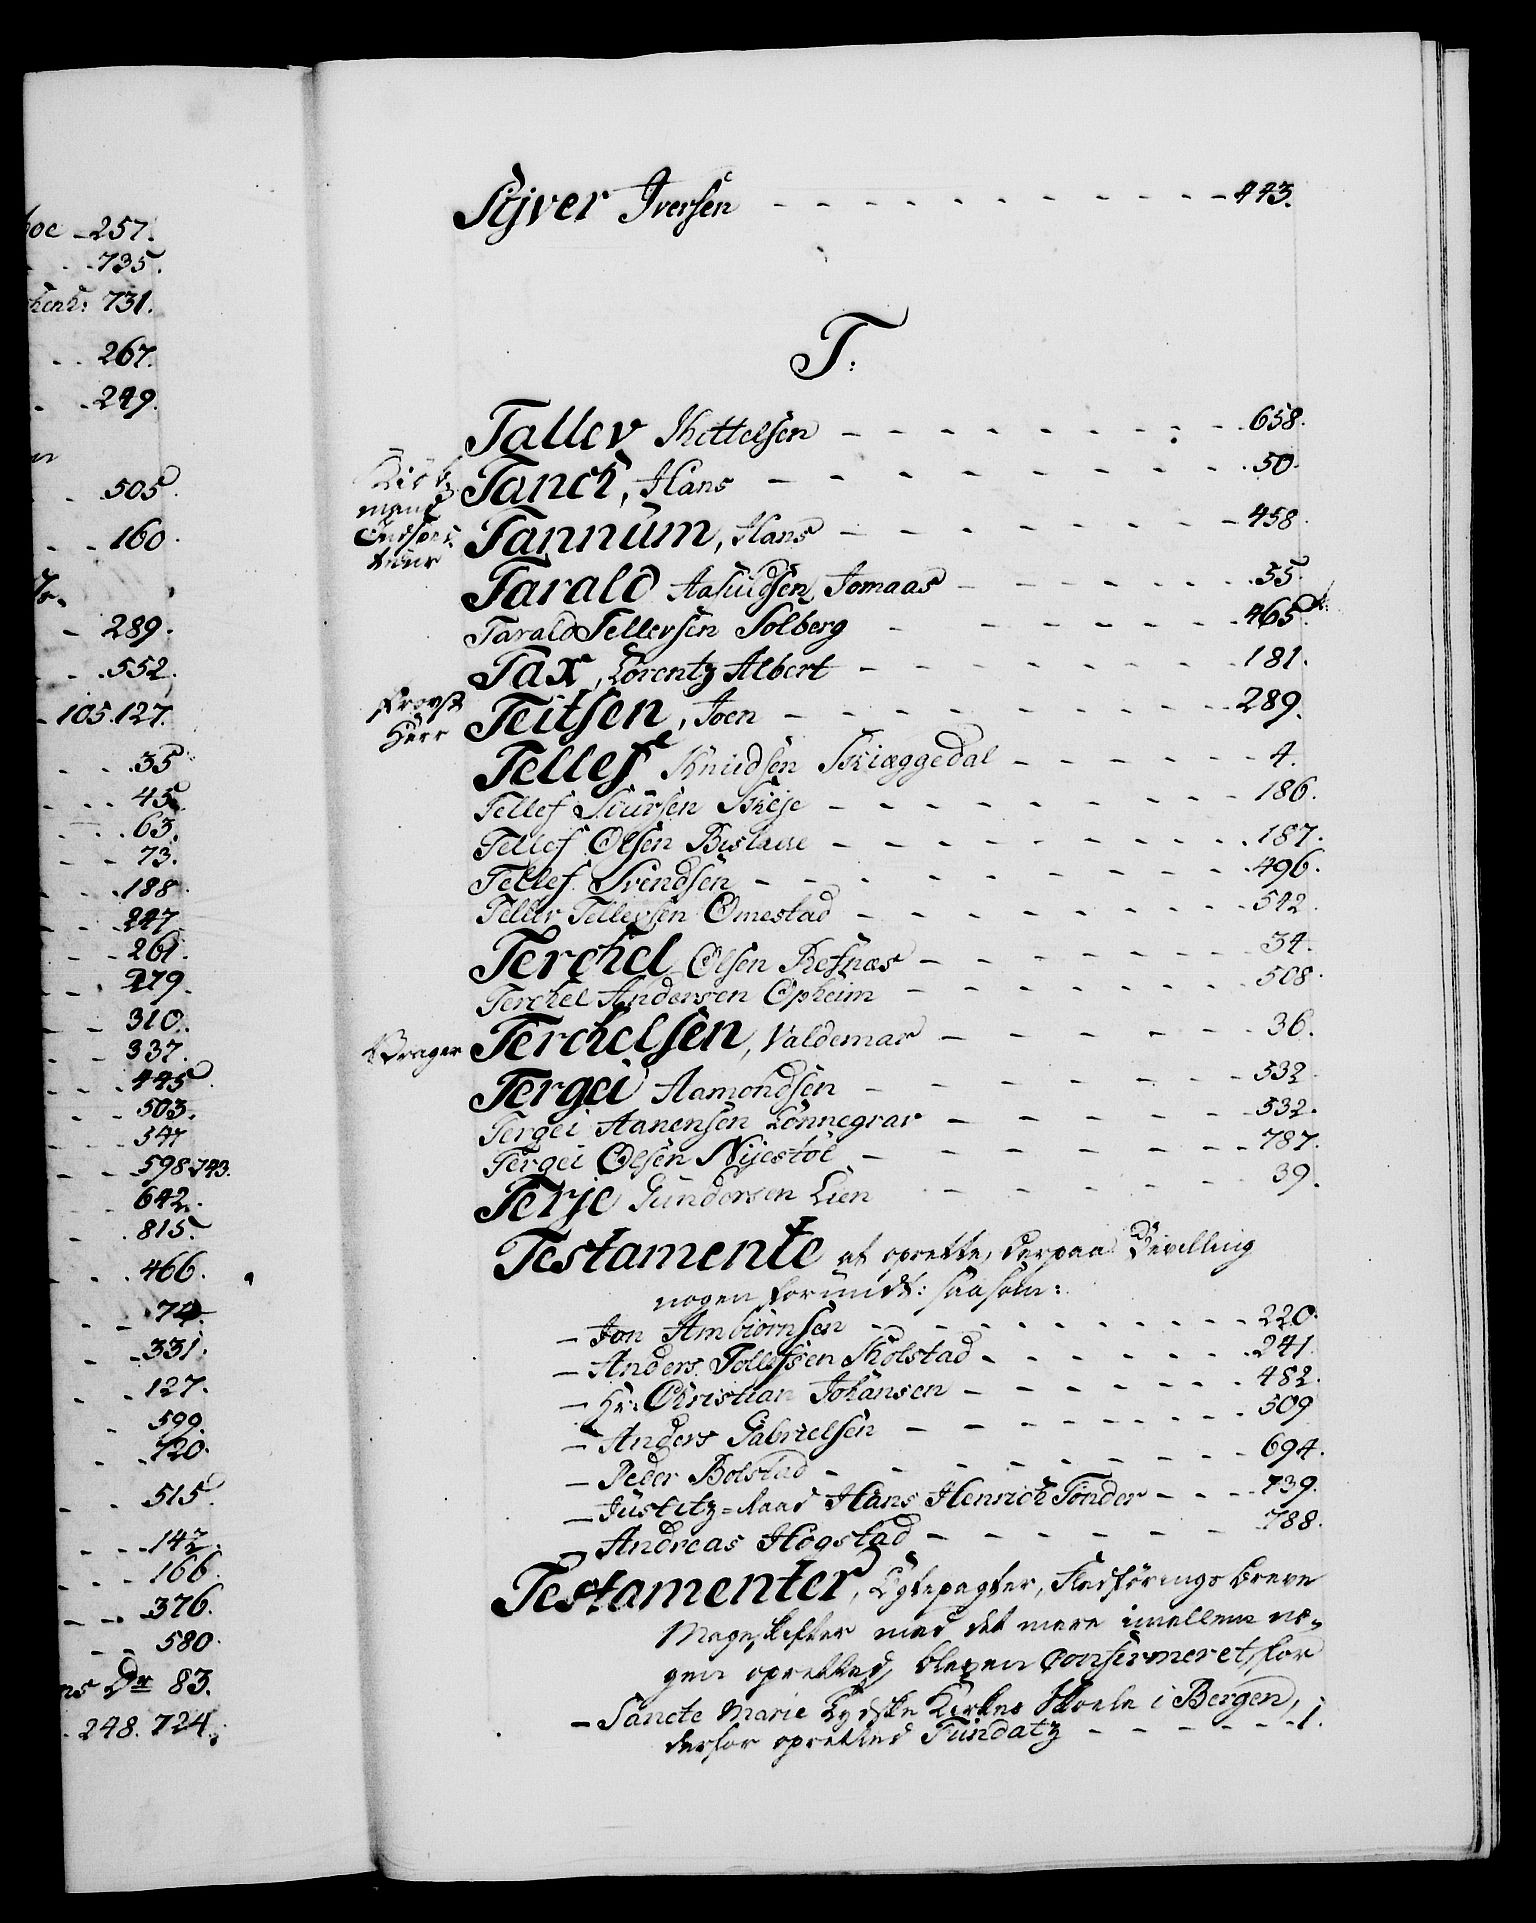 257.
735.
731.
267.
249.
505.
160.
289.
552.
105.127.
35.
45.
63.
73.
188.
247.
261.
279.
310.
337.
445.
503.
547
598.743.
642.
815.
466.
74.
331.
127.
599.
720.
515.
142.
166.
376.
580.
Dr 83.
248. 724.
Syver Iversen - - - 443.
T:
Tallev Kittelsen - - - 658.
Kiöb
mand
Tanch, Hans - - - 50.
Tannum, Hans - - - 458.
Tarald Aasudsen Jomaas - - - 55.
Tarald Tellevsen Solberg - - - 465.
Tax, Lorentz Albert - - - 181.
Provst
Herr
Teitsen, Joen - - - 289.
Tellef Knudsen Skiæggedal - - - 4.
Tellef Siursen Skeje - - - 186.
Tellef Olsen - - - 187.
Tellef Svendsen - - - 496.
Tellev Tellevsen Omestad - - - 542.
Terchel Olsen Refnæs - - - 34.
Terchel Andersen Opheim - - - 508.
Brager Terchelsen, Valdemar - - - 36.
Tergei Aamondsen - - - 532.
Tergei Aanensen Lönnegrav - - - 532.
Tergei Olsen Nyestöl - - - 787.
Terje Gundersen Lien - - - 39.
Testamente at oprette, derpaa Bevilling
nogen forundt: saasom:
- Jon Ambiörnsen - - - 220.
- Anders Tollefsen Skolstad - - - 241.
- Hr: Christian Johansen - - - 482.
- Anders Gabrielsen - - - 509
- Peder Bolstad - - - 694.
- Justitz-Raad Hans Henrich Tönder - - - 739.
- Andreas Hogstad - - - 788.
Testamenter, Egtepagter, Fledförings Breve
Mageskifter med det mere imellem no-
gen opretted, bleven Confirmeret, for
- Sancte Marie Tydske Kirkes Skoele i Bergen,
derfor opretted Fundatz - - - 1.